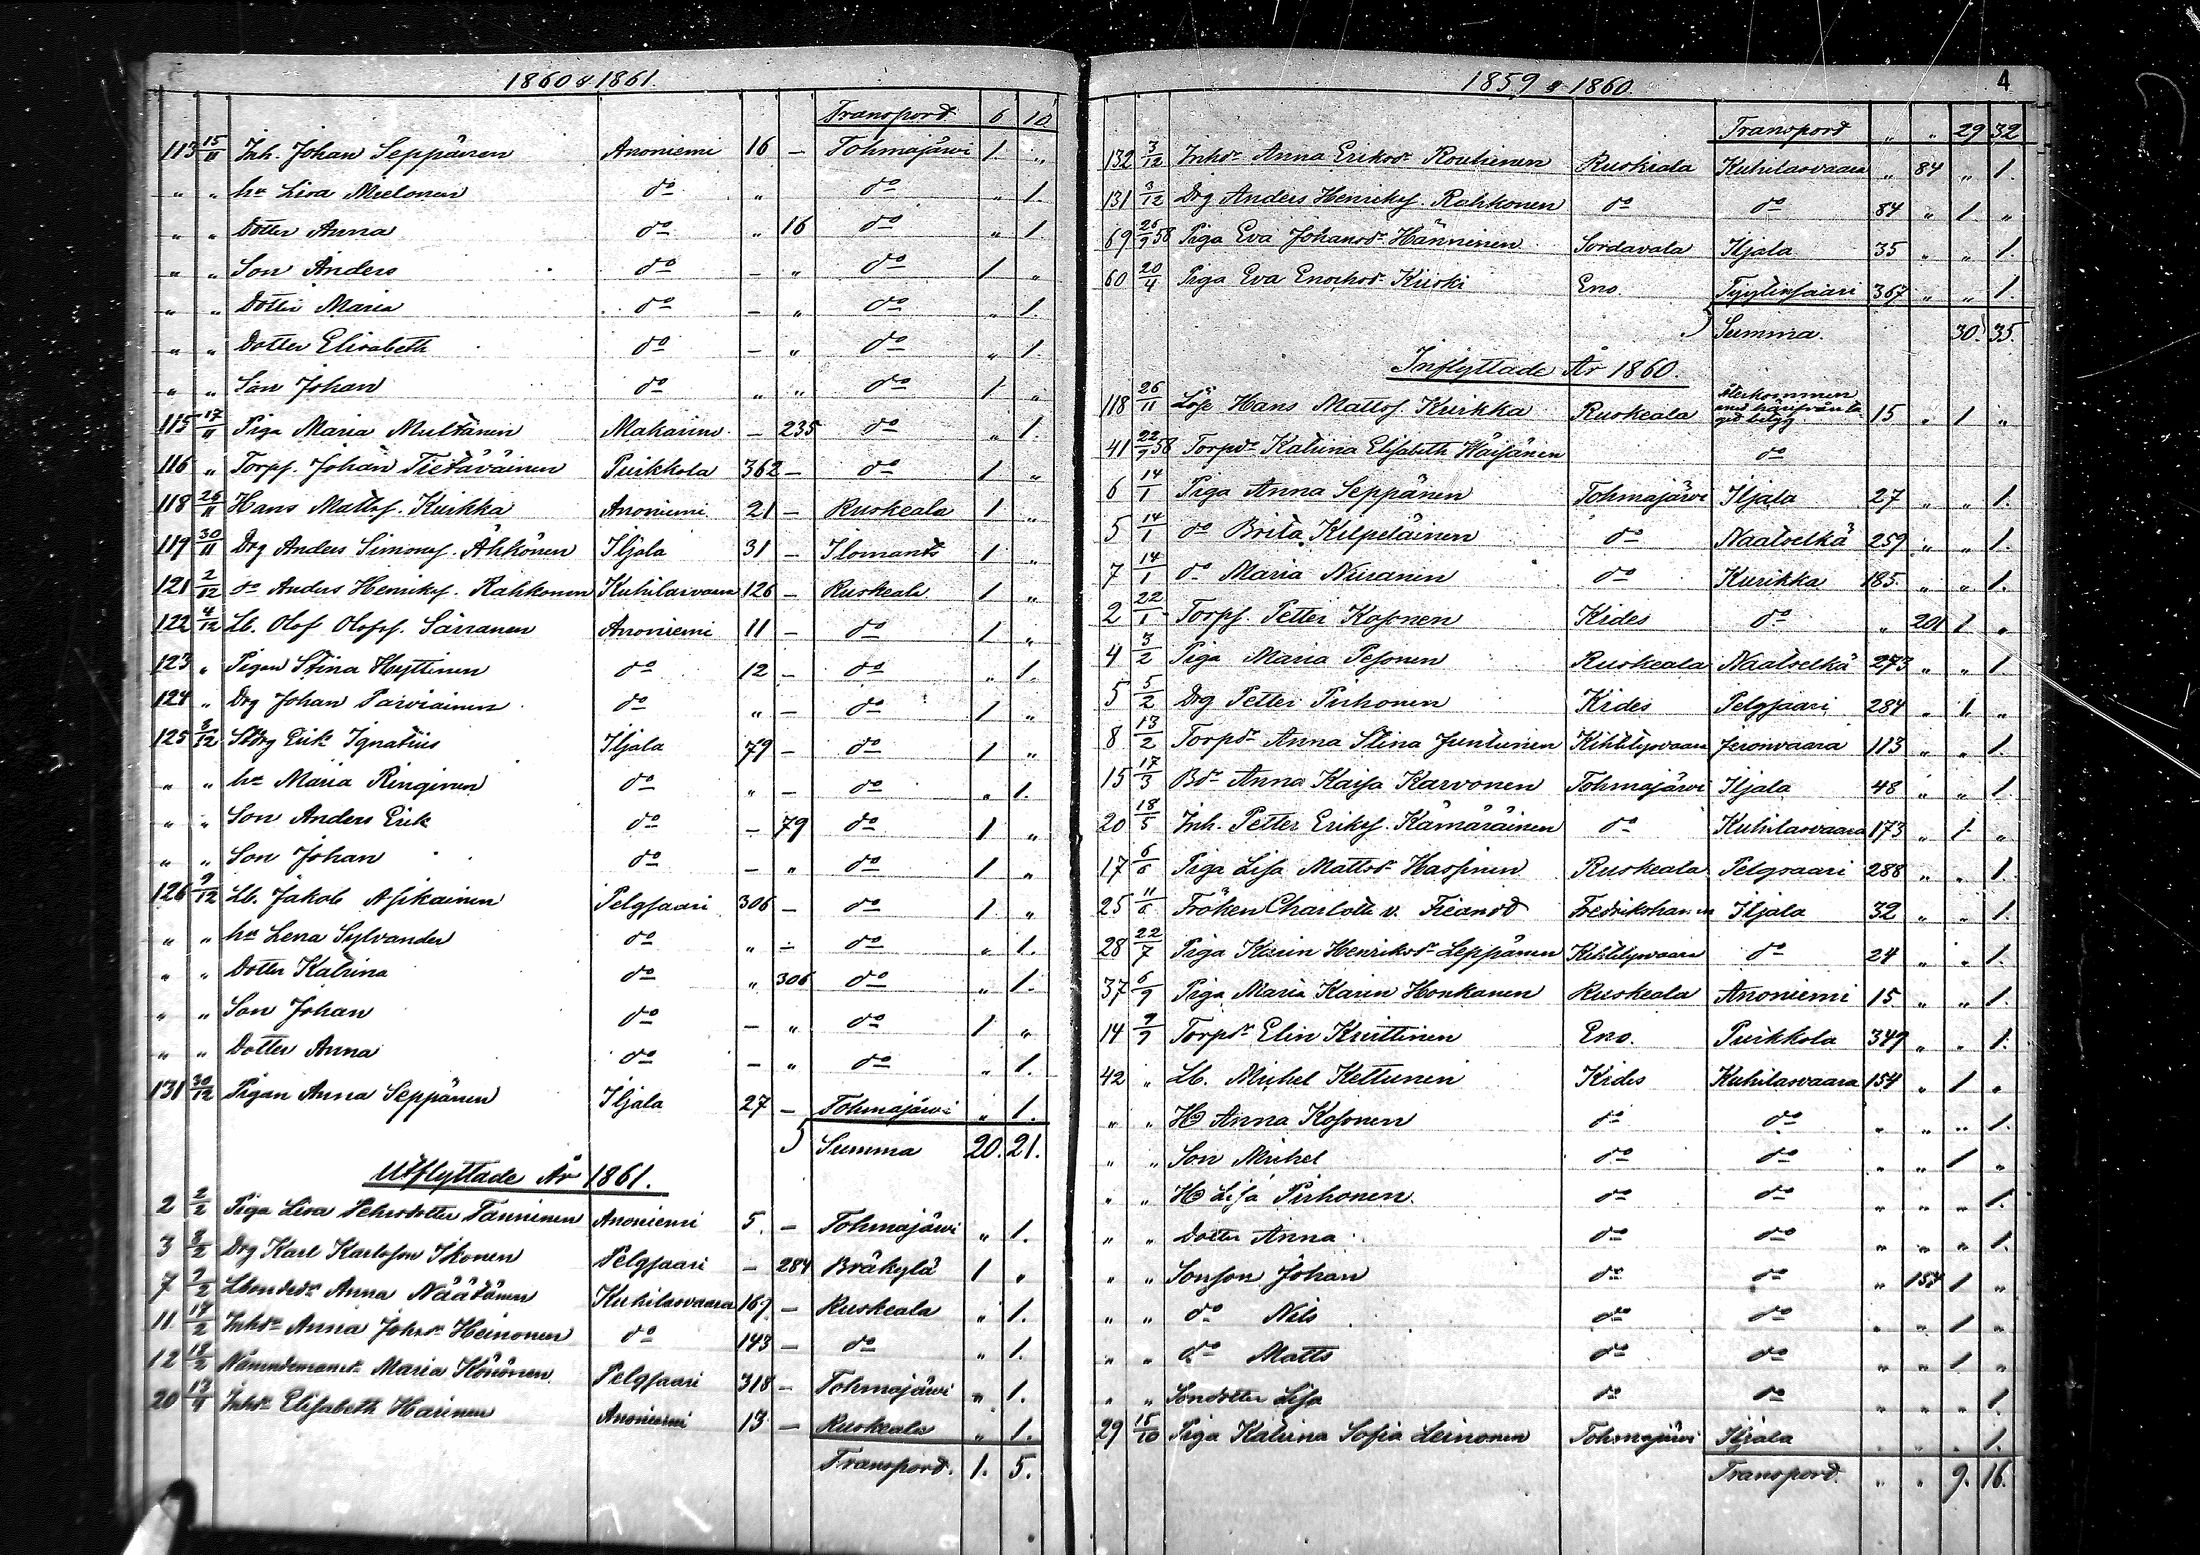 1860 & 1861.
Transpord 6 10
113 15/11 Inh. Johan Seppänen Anoniemi 16 – Tohmajärvi 1. „
„ „ hu Lisa Meelonen do „ do „ 1.
„ „ Dotter Anna do „ 16 do „ 1
„ „ Son Anders do – „ do 1 „
„ „ Dotter Maria do – „ do „ 1.
„ „ Dotter Elisabeth do – „ do „ 1.
„ „ Son Johan do „ „ do 1 „
115 17/11 Piga Maria Multanen Makarinv. – 235 do „ 1.
116 „ Torps. Johan Tietäväinen Puikkola 362 – do 1 „
118 26/11 Hans Mattss. Kurkka Anoniemi 21 – Ruskeala 1 „
119 30/11 Drg Anders Simonss. Ähkönen Iljala 31 – Ilomants 1 „
121 2/12 do Anders Henrikss. Rahkonen Kuhilasvaara 126 – Ruskeala 1 „
122 4/12 Lb. Olof Olofss. Särranen Anoniemi 11 – do 1 „
123 „ Pigan Stina Hyttinen do 12 – do „ 1.
124 „ Drg Johan Parviainen do „ – do 1 „
125 8/12 Stdrg Erik Ignatius Iljala 79 – do 1 „
„ „ hu Maria Ringinen do „ – do „ 1.
„ „ Son Anders Erik do – 79 do 1 „
„ „ Son Johan do – „ do 1 „
126 9/12 Lb. Jakob Asikainen Pelgjaari 306 – do 1 „
„ „ hu Lena Sylvander do „ – do „ 1.
„ „ Dotter Katrina do „ 306 do „ 1.
„ „ Son Johan do – „ do 1 „
„ „ Dotter Anna do – „ do „ 1.
131 30/12 Pigan Anna Seppänen Iljala 27 – Tohmajärvi „ 1.
Summa 20. 21.
Utflyttade År 1861.
2 2/2 Piga Lisa Pehrsdotter Tanninen Anoniemi 5. – Tohmajärvi „ 1.
3 8/2 Drg Karl Karlsson Ikonen Pelgjaari – 284 Bräkylä 1 „
7 9/2 Anna Näätänen Kuhilasvaara 167 – Ruskeala „ 1.
11 17/2 Inhdr Anna Johsdr Heinonen do 143 – do „ 1.
12 18/2 Maria Könönen Pelgjaari 318 – Tohmajärvi „ 1.
20 13/4 Inhdr Elisabeth Harinen Anoniemi 13 – Ruskeala „ 1.
Transpord. 1. 5.
1859 & 1860. 4
Transpord „ „ 29 32
132 3/12 Inhdr Anna Eriksdr Routinen Ruskeala Kuhilasvaara „ 84 „ 1.
131 3/12 Drg Anders Henrikss. Rahkonen do do 84 „ 1. „
69 26/9 58 Piga Eva Johansdr Hänninen Sordavala Iljala 35 „ „ 1.
60 20/4 Piga Eva Enochsdr Kuski Eno. 367 „ „ 1.
Summa. 30. 35.
Inflyttade År 1860.
118 26/11 Hans Mattss. Kurkka Ruskeala återkommen 15 „ 1 „
41 22/9 58 Torpdr Katrina Elisabeth Häisänen do
6 14/1 Piga Anna Seppänen Tohmajärvi Iljala 27 „ „ 1.
5 14/1 do Brita Kilpeläinen do Naatselkä 259 „ „ 1.
7 14/1 do Maria Niiranen do Kurikka 185 „ „ 1.
2 22/1 Torps. Petter Kosonen Kides do „ 201 1 „
4 3/2 Piga Maria Pesonen Ruskeala Naatselkä 273 „ „ 1.
5 5/2 Drg Petter Pirhonen Kides Pelgjaari 284 „ 1. „
8 13/2 Torpdr Anna Stina Juntunen Kihtelysvaara Jeronvaara 113 „ „ 1.
15 17/3 Bdr Anna Kaisa Karvonen Tohmajärvi Iljala 48 „ „ 1.
20 18/5 Inh. Petter Erikss. Kämäräinen do Kuhilasvaara 173 „ 1 „
17 6/6 Piga Lisa Mattsdr Hassinen Ruskeala Pelgjaari 288 „ „ 1.
25 11/6 Fröken Charlotte v. Fieandt Fredrikshamn Iljala 32 „ „ 1.
28 22/7 Piga Karin Henriksdr Leppänen Kihtelysvaara do 24 „ „ 1.
37 6/9 Piga Maria Karin Honkanen Ruskeala Anoniemi 15 „ „ 1.
14 9/9 Torpdr Elin Kurttinen Eno. Puikkola 349 „ „ 1.
42 „ Lb. Mikel Kettunen Kides Kuhilasvaara 154 „ 1 „
„ „ Hu Anna Kosonen do do „ „ „ 1.
„ „ Son Mikel do do „ „ 1 „
„ „ Hu Lisa Pirhonen. do do „ „ „ 1.
„ „ Dotter Anna do do „ „ „ 1.
„ „ Sonson Johan do do „ 154 1 „
„ „ do Nils do do „ „ 1 „
„ „ do Matts do do „ „ 1 „
„ „ Sondotter Lisa do do „ „ „ 1.
29 15/10 Piga Katrina Sofia Leinonen Tohmajärvi Iljala „ „ „ 1.
Transpord. „ „ 9. 16.